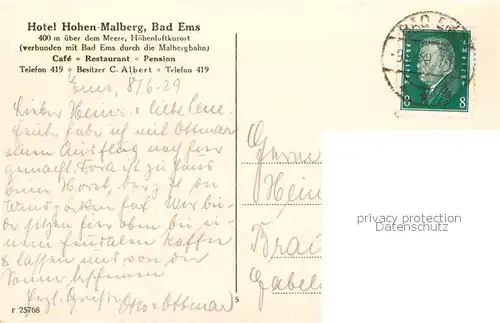 Hotel Hohen-Malberg, Bad Ems
400 m über dem Meere, Höhenluftkurort
(verbunden mit Bad Ems durch die Malbergbahn)
Café • Restaurant • Pension
Telefon 419 • Besitzer C. Albert • Telefon 419
Ems, 8/6.29
Lieber Heiner & liebe Lene.
Heute habe ich mit Ottmar
einen Ausflug nach hier
gemacht. Dora ist zu Haus
beim Horst, der
Wir bei-
de sitzen hier oben bei ei-
nem feudalen Kaffee
& lassen uns von der
Sonne bescheinen
Herzl. Grüße Otto & Ottmar
r 25768
5
BAD EMS
Deutsches Reich
8 8
Herrn
Hein
Brau
Gabel
personal data protection
personal data protection